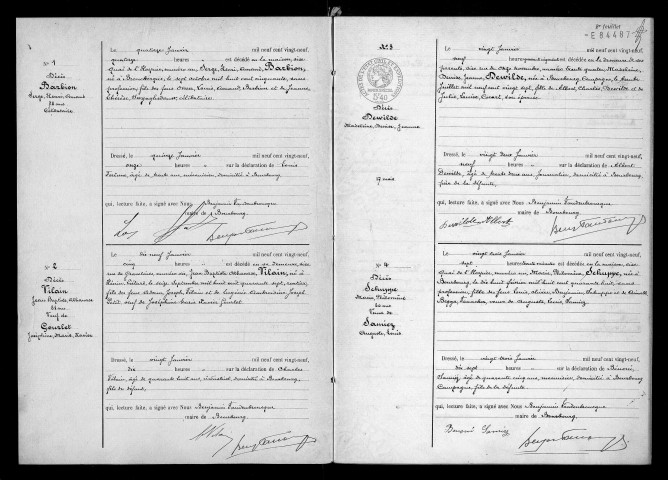 N° 1
Décès
Barbion
Serge, Henri, Amand
78 ans
Célibataire
Le quatorze Janvier mil neuf cent vingt-neuf,
quatorze heures est décédé en la maison, dite
Quai de l'Hospice, numéro un, Serge, Henri, Amand, Barbion,
né à Brouckerque, le sept octobre mil huit cent cinquante, sans
profession, fils des feus Omer, Louis, Amand, Barbion et de Jeanne,
Célibataire.
Dressé, le quinze Janvier mil neuf cent vingt-neuf,
onze heures sur la déclaration de Louis
âgé de trente ans, domicilié à Bourbourg
qui, lecture faite, a signé avec Nous Benjamin Vandenbrouque
maire de Bourbourg.
N° 2
Décès
Vilain
Jean, Baptiste, Athanase
84 ans
Veuf de
Gourlet
Joséphine, Marie, Xavier
Le dix neuf Janvier mil neuf cent vingt-neuf,
cinq heures est décédé en sa demeure, dite
rue de Gravelines, numéro dix, Jean Baptiste Athanase, Vilain, né à
le seize Septembre mil huit cent quarante sept, rentier,
fils des feus Joseph, Vilain et de Eugénie Joseph
veuf de Joséphine Marie Xavier Gourlet.
Dressé, le vingt Janvier mil neuf cent vingt-neuf,
dix heures sur la déclaration de Charles
Vilain, âgé de quarante huit ans, domicilié à Bourbourg,
fils du défunt,
qui, lecture faite, a signé avec Nous Benjamin Vandenbrouque
maire de Bourbourg.
2e feuillet
E 84487
N° 3
Décès
Dewilde
Madeleine, Denise, Jeanne
17 mois
Le vingt Janvier mil neuf cent vingt-neuf,
neuf heures est décédée en la demeure de ses
parents, dite rue de onze novembre, numéro trente quatre, Madeleine,
Denise, Jeanne, Dewilde, née à Bourbourg Campagne, le trente
Juillet mil neuf cent vingt sept, fille de Albert, Charles, Dewilde et de
Julie, Louise, son épouse.
Dressé, le vingt deux Janvier mil neuf cent vingt-neuf,
neuf heures sur la déclaration de Albert
Dewilde, âgé de trente deux ans, Journalier, domicilié à Bourbourg,
père de la défunte,
qui, lecture faite, a signé avec Nous Benjamin Vandenbrouque
maire de Bourbourg.
Dewilde Albert
N° 4
Décès
Schyppe
Marie, Philomène
80 ans
Veuve de
Samiez
Auguste, Louis
Le vingt trois Janvier mil neuf cent vingt-neuf,
sept heures trente minutes est décédée en la maison, dite
Quai de l'Hospice, numéro un, Marie, Philomène, Schyppe, née à
Bourbourg, le dix huit février mil huit cent quarante huit, sans
profession, fille des feus Louis, Benjamin, Schyppe et de
veuve de Auguste, Louis, Samiez.
Dressé, le vingt trois Janvier mil neuf cent vingt-neuf,
dix sept heures sur la déclaration de Benoni
Samiez, âgé de quarante cinq ans, domicilié à Bourbourg
Campagne, fils de la défunte,
qui, lecture faite, a signé avec Nous Benjamin Vandenbrouque
maire de Bourbourg.
Benoni Samiez